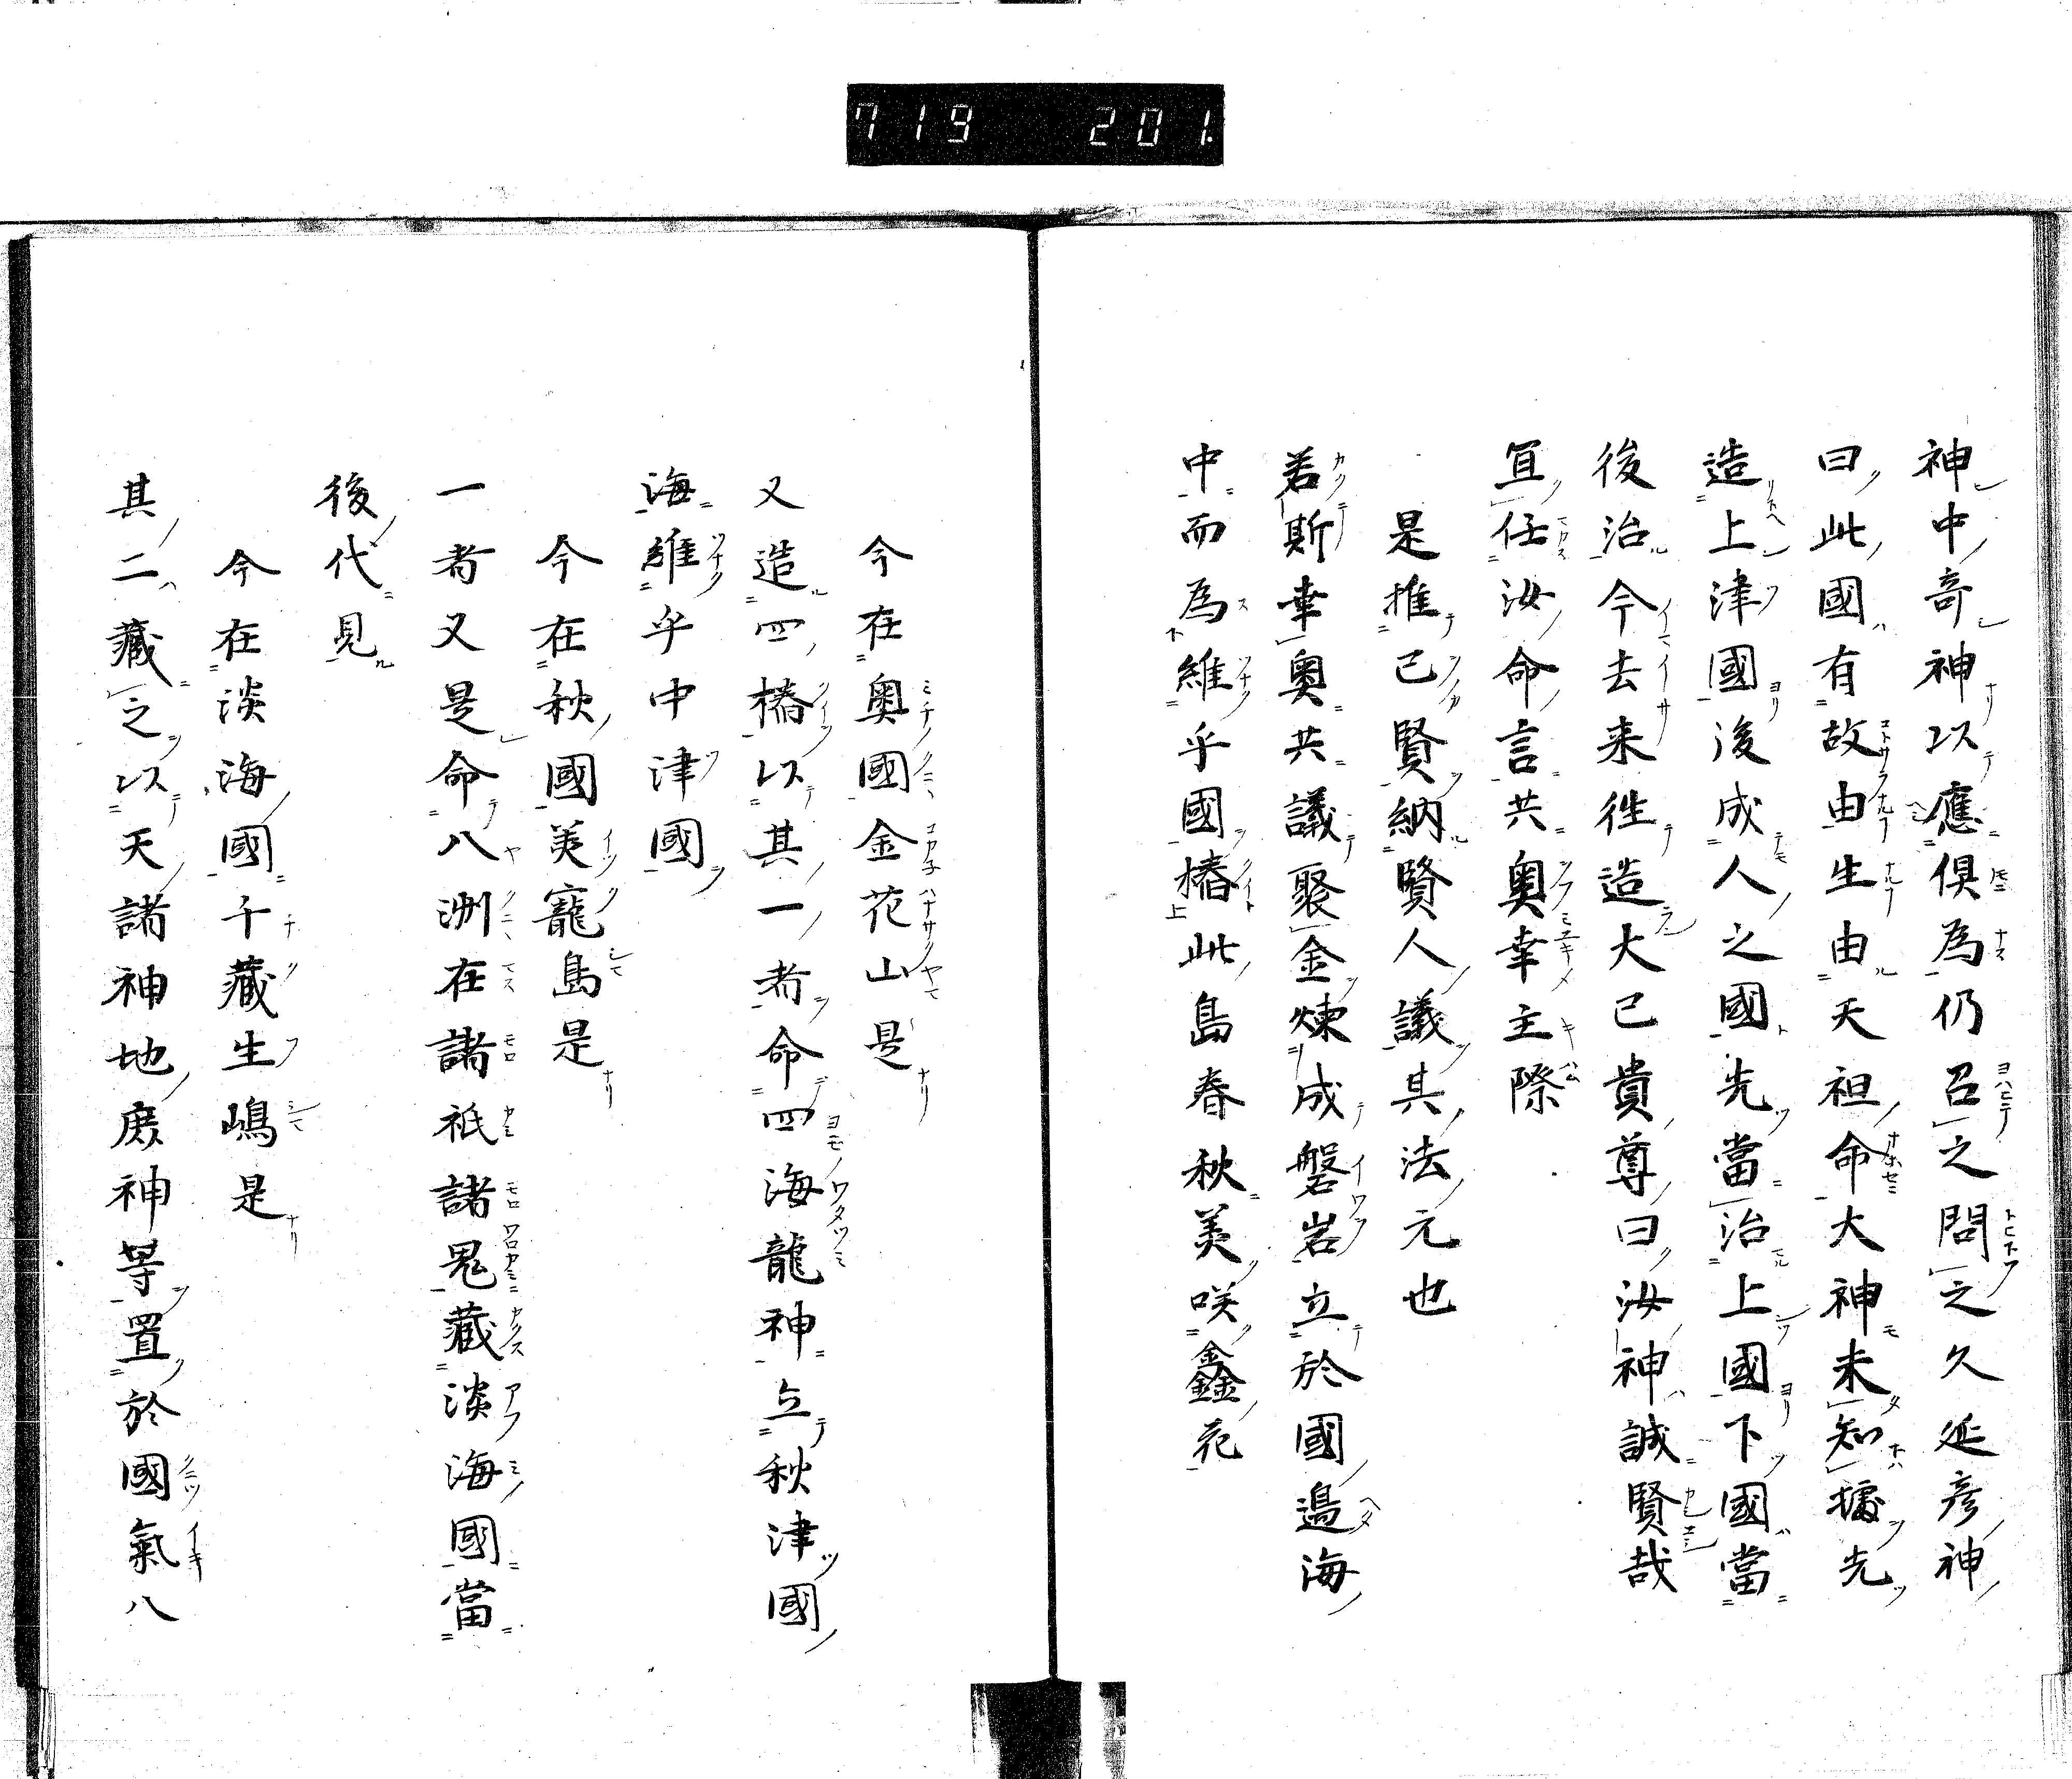 719 201.
神中奇神以應倶為仍召之問之久延彦神
曰此國有故由生由天祖命大神未知據先
造上津國後成人之國先當治上國下國當
後治今去来徃造大己貴尊曰汝神誠賢哉
宜任汝命言共奥幸主際
是推己賢納賢人議其法元也
若斯幸奥共議聚金煉成磐岩立於國邉海
中而為維乎國樁此島春秋美咲鑫花
今在奥國金花山是
又造四樁以其一者命四海龍神立秋津國
海維乎中津國
今在秋國美寵島是
一者又是命八洲在諸祇諸鬼藏淡海國當
後代見
今在淡海國千藏生嶋是
其二藏之以天諸神地庶神等置於國氣八